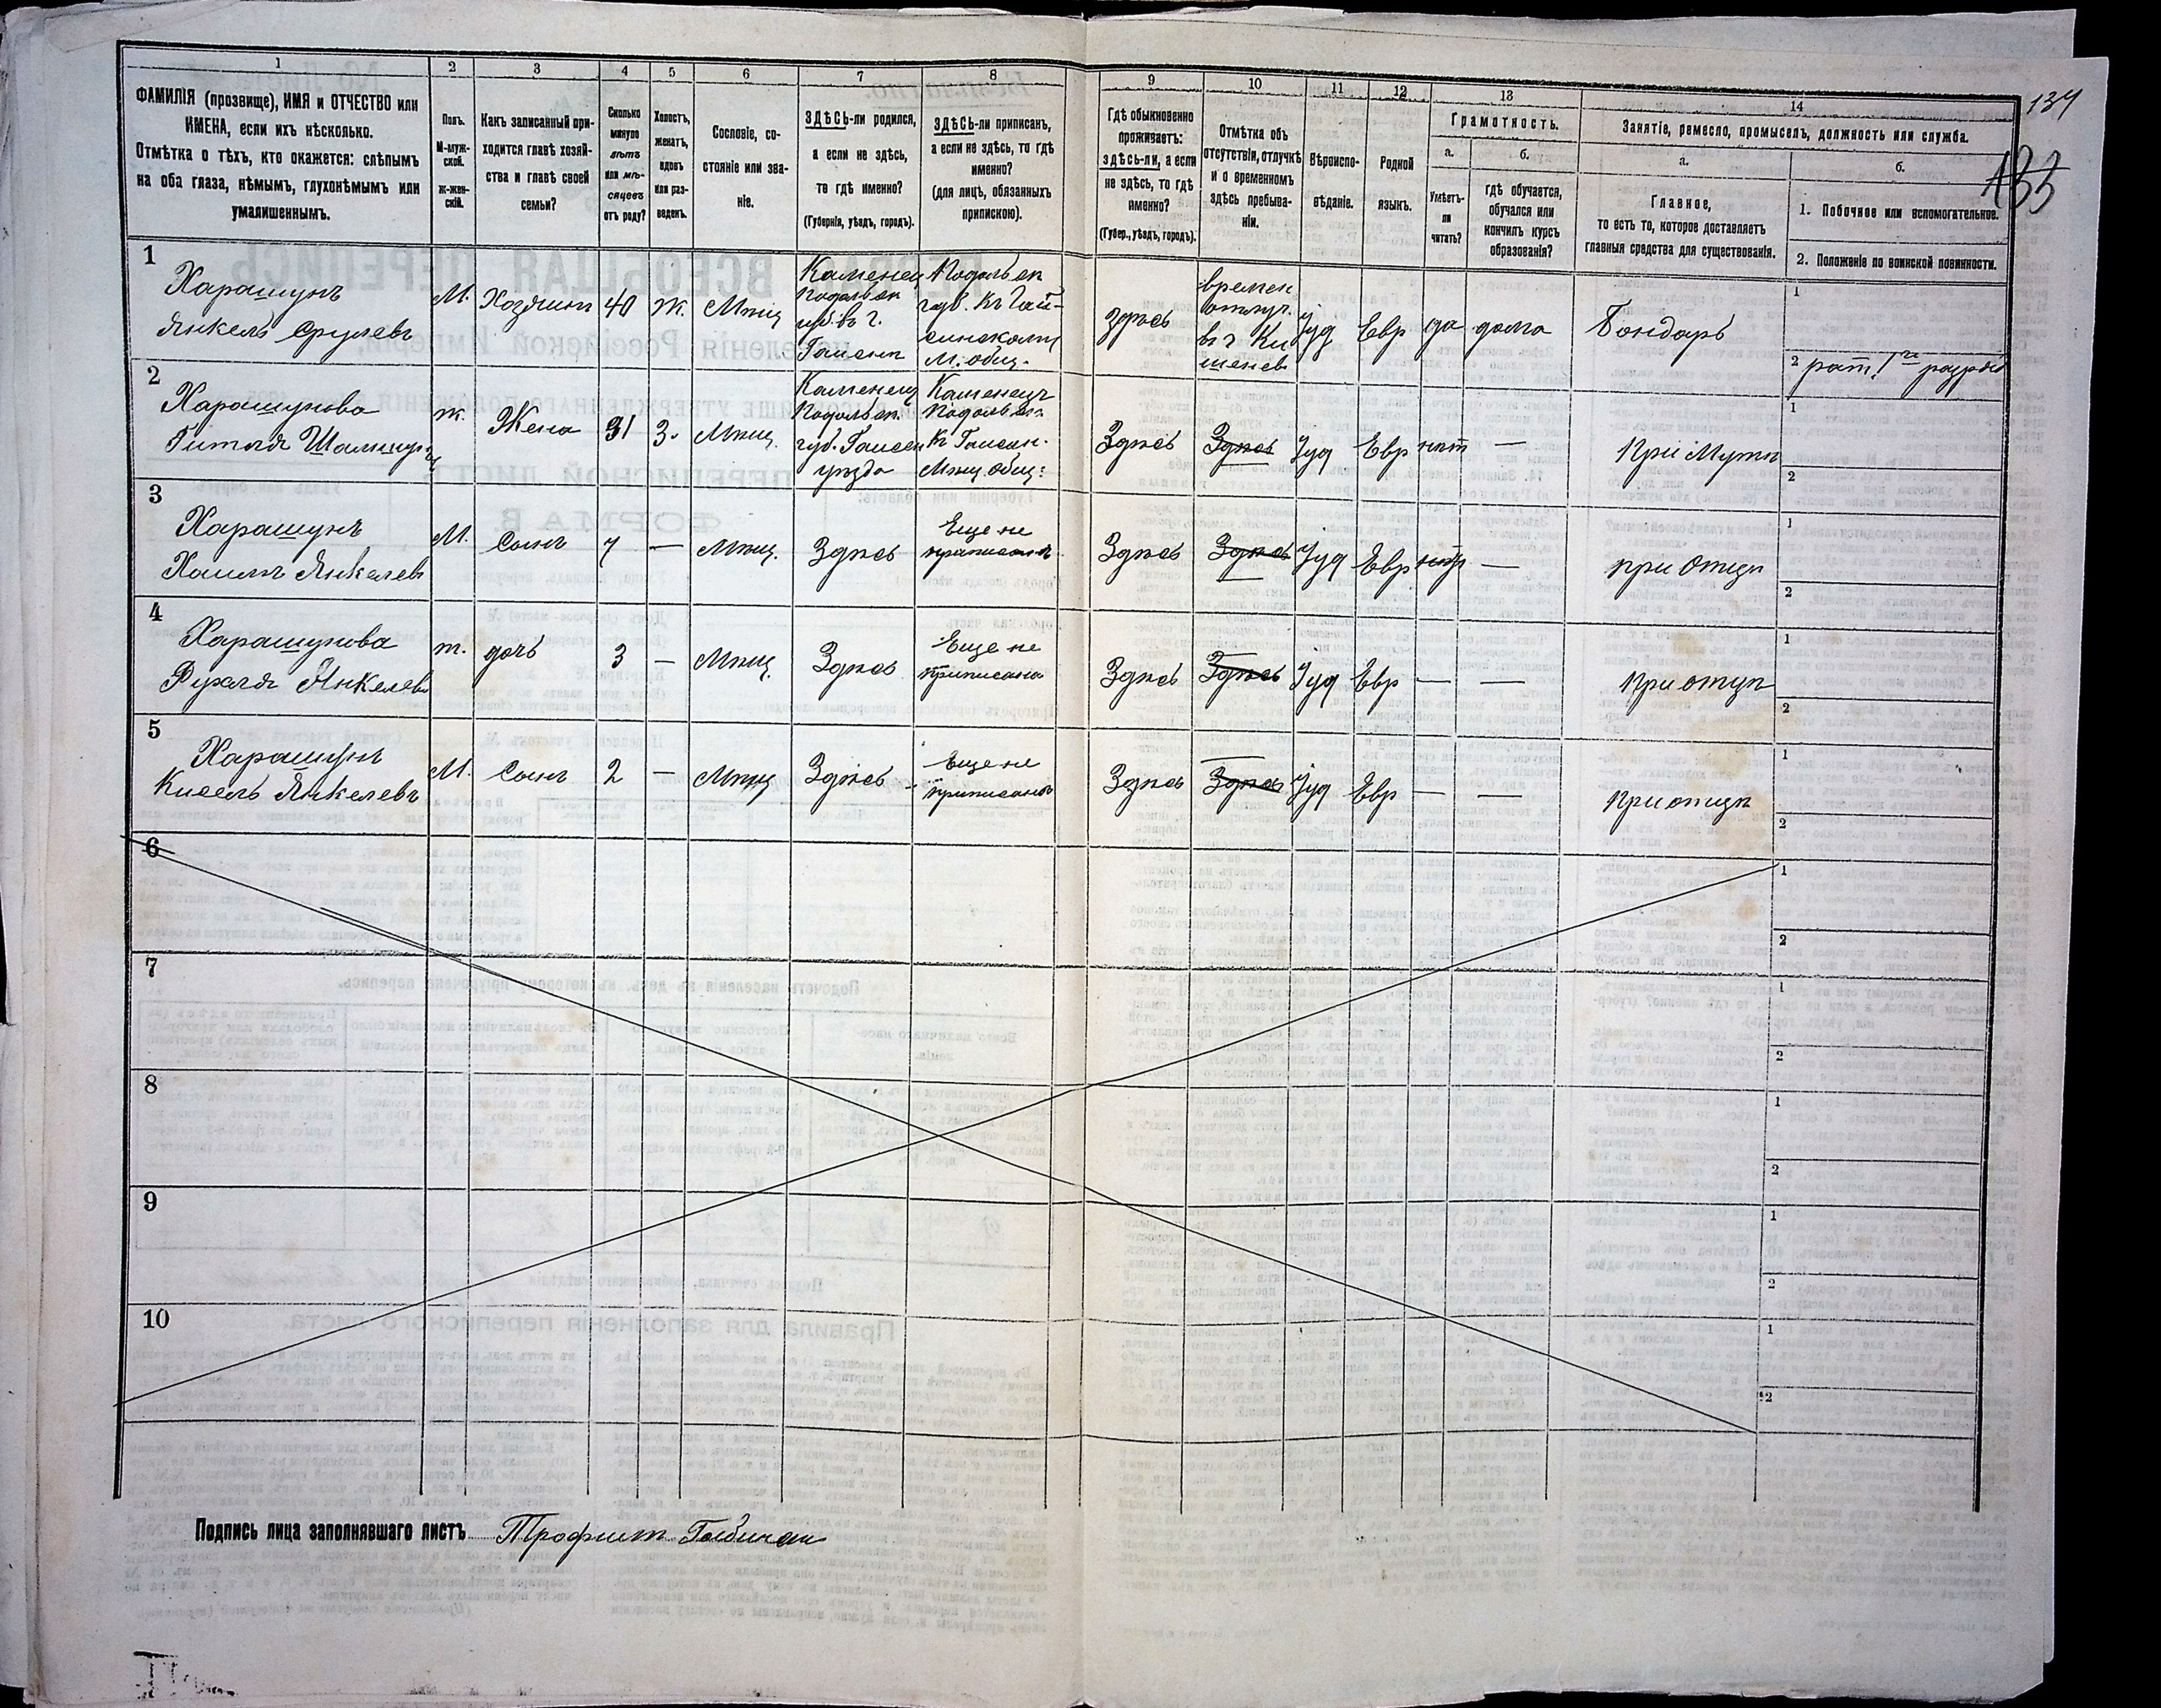 134
133
1 2 3 4 5 6 7 8 9 10 11 12 13 14
ФАМИЛІЯ (прозвище), ИМЯ и ОТЧЕСТВО или
ИМЕНА, если ихъ нѣсколько.
Отмѣтка о тѣхъ, кто окажется: слѣпымъ
на оба глаза, нѣмымъ, глухонѣмымъ или
умалишеннымъ.
Полъ.
М-муж-
ской.
ж-жен-
скій.
Какъ записанный при-
ходится главѣ хозяй-
ства и главѣ своей
семьи?
Сколько
минуло
лѣтъ
или мѣ-
сяцевъ
отъ роду?
Холостъ,
женатъ,
вдовъ
или раз-
веденъ.
Сословіе, со-
стояніе или зва-
ніе.
ЗДѢСЬ-ли родился,
а если не здѣсь,
то гдѣ именно?
(Губернія, уѣздъ, городъ).
ЗДѢСЬ-ли приписанъ,
а если не здѣсь, то гдѣ
именно?
(для лицъ, обязанныхъ
припискою).
Гдѣ обыкновенно
проживаетъ:
здѣсь-ли, а если
не здѣсь, то гдѣ
именно?
(Губер., уѣздъ, городъ).
Отмѣтка объ
отсутствіи, отлучкѣ
и о временномъ
здѣсь пребыва-
ніи.
Вѣроиспо-
вѣданіе.
Родной
языкъ.
Грамотность.
а.
Умѣетъ-
ли
читать?
б.
гдѣ обучается,
обучался или
кончилъ курсъ
образованія?
Занятіе, ремесло, промыселъ, должность или служба.
а.
Главное,
то есть то, которое доставляетъ
главныя средства для существованія.
б.
1. Побочное или вспомогательное.
2. Положеніе по воинской повинности.
1
Харашунъ
Янкель Срулевъ
М.
Хозяинъ
40
Ж.
Мѣщ
Каменец
Подольск
Подольск
губ. къ Гай-
синскому
М. общ.
здѣсь
времен
отлуч.
въ г Ки
шенев
Іуд
Евр
да
дома
Бондарь
1
2 рат. 1го разряд
2
Харашунова
Гитля
ж.
Жена
31
З.
Мѣщ.
Каменец
Подольск.
губ. Гайсен
уезда
Каменецъ
Подольск.
К Гайсин.
Мѣщ. общ:
Здѣсь
Здѣсь
Іуд
Евр
нѣт
—
При Мужѣ
1
2
3
Харашунъ
Хаимъ Янкелевъ
М.
Сынъ
7
—
Мѣщ.
Здѣсь
Еще не
приписанъ
Здѣсь
Здѣсь
Іуд
Евр
нѣт
—
при Отцѣ
1
2
4
Харашунова
Рухля Янкелева
ж.
дочь
3
—
Мѣщ.
Здѣсь
Еще не
приписана
Здѣсь
Здѣсь
Іуд
Евр
—
—
При отцѣ
1
2
5
Харашунъ
Кисель Янкелевъ
М.
Сынъ
2
—
Мѣщ
Здѣсь
Еще не
приписанъ
Здѣсь
Здѣсь
Іуд
Евр
—
—
При отцѣ
1
2
6
1
2
7
1
2
8
1
2
9
1
2
10
1
2
Подпись лица заполнявшаго листъ Трофим